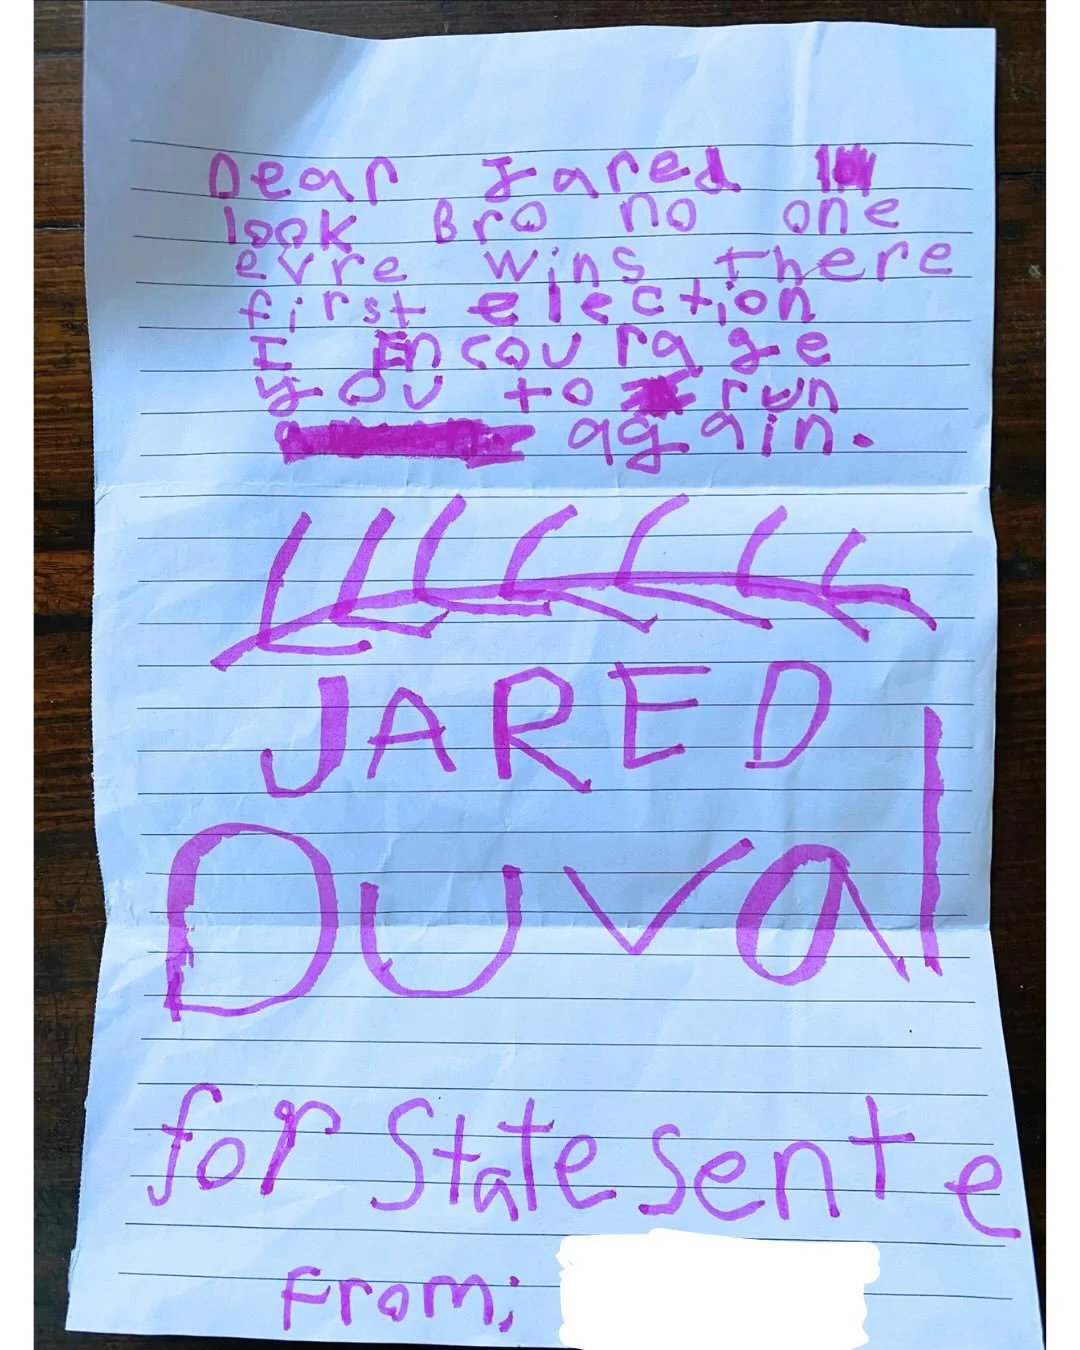 Dear Jared
look Bro no one
evre wins there
first election
I Encourage
you to run
again.
JARED
Duval
for State sente
From;